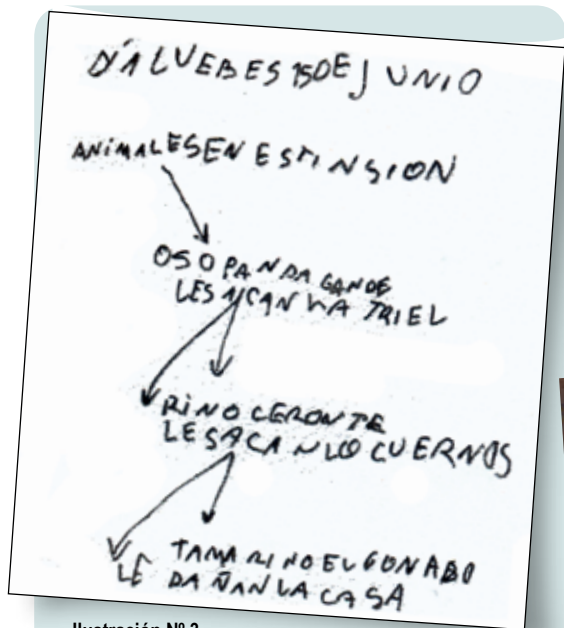 DÍA LUEBES 15 DE JUNIO
ANIMALES EN ESTINSION
OSO PANDA GANDE
LE SACAN LA TRIEL
RINOCERONTE
LE SACAN LO CUERNOS
TAMARINO EL GONABO
LE DAÑAN LA CASA
Ilustración Nº 2